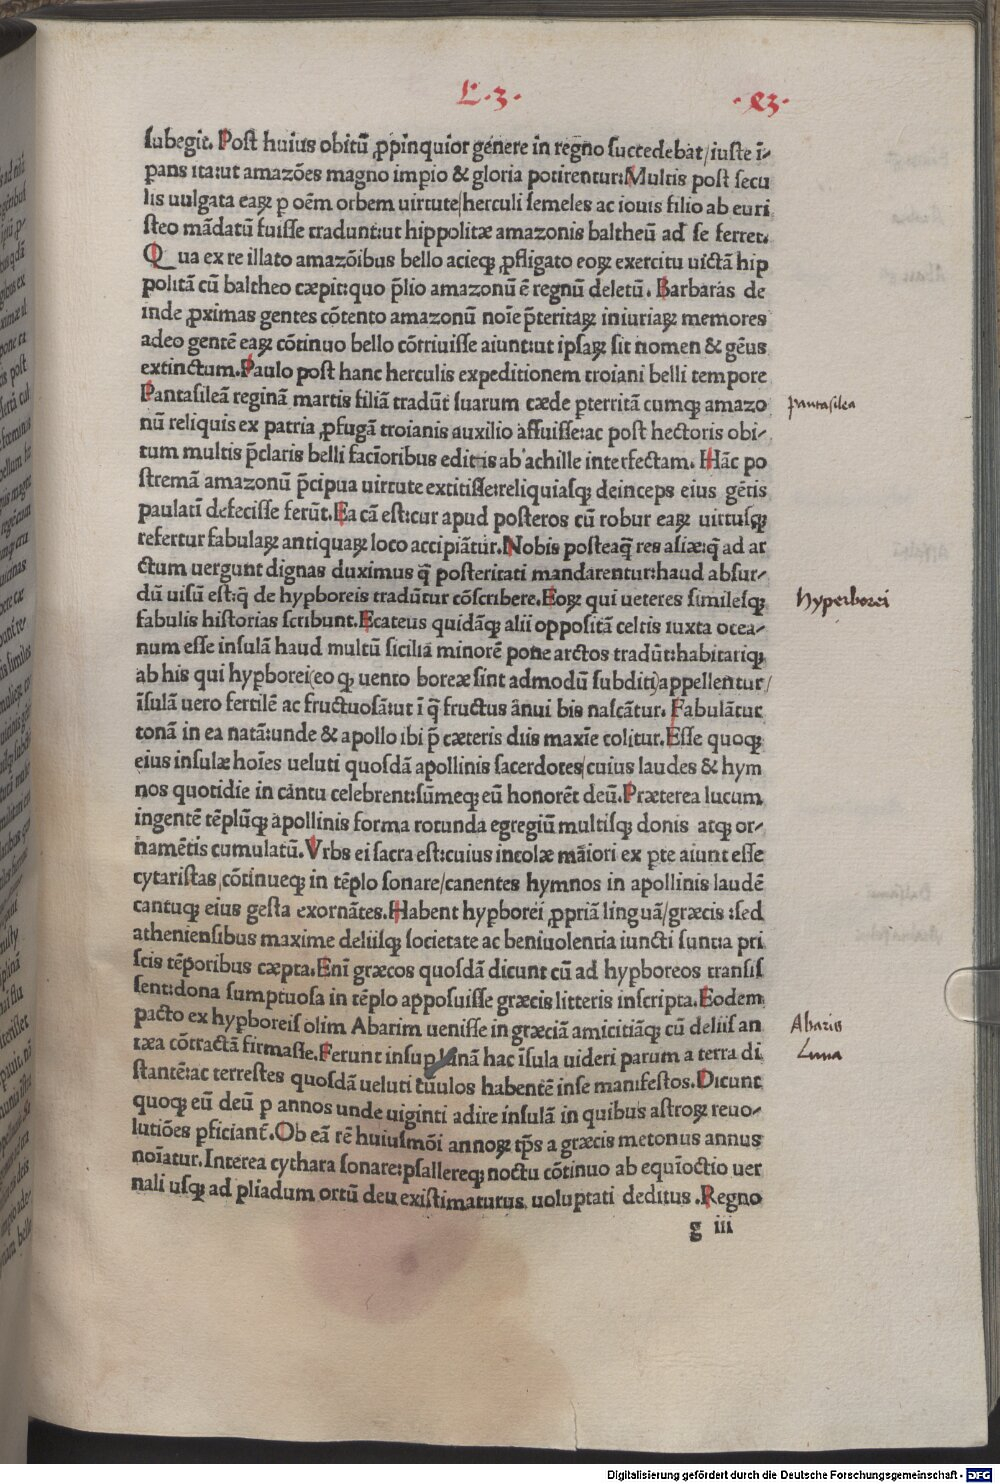 L·3·
·e3·
subegit. Post huius obitū ꝓpinquior genere in regno succedebat/iuste ī-
pans ita:ut amazōes magno impio & gloria potirentur:Multis post secu
lis uulgata eaꝝ p oēm orbem uirtute/herculi semeles ac iouis filio ab euri
steo mādatū fuisse tradunt:ut hippolitæ amazonis baltheū ad se ferret.
Qua ex re illato amazōibus bello acieqꝫ ꝓfligato eoꝝ exercitu uictā hip
politā cū baltheo cæpit:quo p̄lio amazonū ē regnū deletū. Barbaras de
inde ꝓximas gentes cōtento amazonū noīe p̄teritaꝝ iniuriaꝝ memores
adeo gentē eaꝝ cōtinuo bello cōtriuisse aiunt:ut ipsaꝝ sit nomen & gēus
extinctum. Paulo post hanc herculis expeditionem troiani belli tempore
Pantasileā reginā martis filiā tradūt suarum cæde pterritā cumqꝫ amazo
nū reliquis ex patria ꝓfugā troianis auxilio affuisse:ac post hectoris obi-
tum multis p̄claris belli facīoribus editis ab achille interfectam. Hāc po
stremā amazonū p̄cipua uirtute extitisse:reliquiasqꝫ deinceps eius gētis
paulatī defecisse ferūt. Ea cā est:cur apud posteros cū robur eaꝝ uirtusqꝫ
refertur fabulaꝝ antiquaꝝ loco accipiātur. Nobis posteaq̄ res asiæ:q̄ ad ar
ctum uergunt dignas duximus q̄ posteritati mandarentur:haud absur-
dū uisū est:q̄ de hypboreis tradūtur cōscribere. Eoꝝ qui ueteres similesqꝫ
fabulis historias scribunt. Ecateus quidāqꝫ alii oppositā celtis iuxta ocea-
num esse insulā haud multū sicilia minorē pone arctos tradūt:habitariqꝫ
ab his qui hypborei(eo qꝫ uento boreæ sint admodū subditi)appellentur/
īsulā uero fertilē ac fructuosā:ut ī q̄ fructus ānui bis nascātur. Fabulātur
tonā in ea natā:unde & apollo ibi p̄ cæteris diis maxīe colitur. Esse quoqꝫ
eius insulæ hoīes ueluti quosdā apollinis sacerdotes/cuius laudes & hym
nos quotidie in cāntu celebrent:sūmeqꝫ eū honorēt deū. Præterea lucum
ingentē tēplūqꝫ apollinis forma rotunda egregiū multisqꝫ donis atqꝫ or-
namētis cumulatū. Vrbs ei sacra est:cuius incolæ māiori ex pte aiunt esse
cytaristas,cōtinueqꝫ in tēplo sonare/canentes hymnos in apollinis laudē
cantuqꝫ eius gesta exornātes. Habent hypborei ꝓpriā linguā/græcis :sed
atheniensibus maxime deliisqꝫ societate ac beniuolentia iuncti suntia pri
scis tēporibus cæpta. Enī græcos quosdā dicunt cū ad hypboreos transis
sent:dona sumptuosa in tēplo apposuisse græcis litteris inscripta. Eodem
pacto ex hypboreis olim Abarim uenisse in græciā amicitiāqꝫ cū deliis an
tæa cōtractā firmasse. Ferunt insup lunā hac īsula uideri parum a terra di
stantē:ac terrestes quosdā ueluti tūulos habentē inse manifestos. Dicunt
quoqꝫ eū deū p annos unde uiginti adire insulā in quibus astroꝝ reuo-
lutiōes pficiant̄. Ob eā rē huiusmōi annoꝝ tp̄s a græcis metonus annus
noīatur. Interea cythara sonare:psallereqꝫ noctu cōtinuo ab equīoctio uer
nali usqꝫ ad pliadum ortū deu existimaturus uoluptati deditus . Regno
g iii
pantasilea
hyperborei
Abaris
Luna
Digitalisierung gefördert durch die Deutsche Forschungsgemeinschaft - DFG